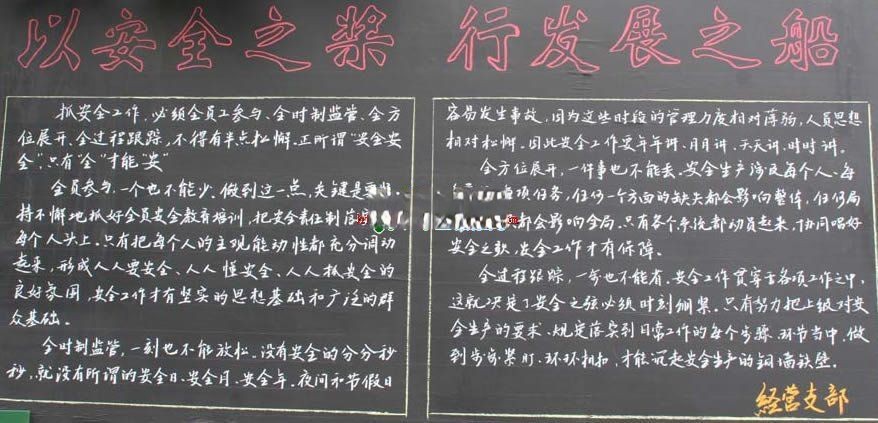 以安全之桨 行发展之船
抓安全工作、必须全员工参与、全时制监管、全方
位展开、全过程跟踪,不得有半点松懈。正所谓“安全安
全”,只有“全”才能“安”
全员参与,一个也不能少。做到这一点,关键是要
持不懈地抓好全员安全教育培训,把安全责任制落
每个人头上。只有把每个人的主观能动性都充分调动
起来,形成人人要安全、人人懂安全、人人抓安全的
良好氛围,安全工作才有坚实的思想基础和广泛的群
众基础。
全时制监管,一刻也不能放松。没有安全的分分秒
秒,就没有所谓的安全日、安全月、安全年。夜间和节假日
容易发生事故,因为这些时段的管理力度相对薄弱,人员思想
相对松懈。因此安全工作要年年讲、月月讲、天天讲、时时讲。
全方位展开,一件事也不能丢。安全生产涉及每个人、每
项任务,任何一个方面的缺失都会影响整体,任何局
都会影响全局。只有各个系统都动员起来,协同唱好
安全之歌,安全工作才有保障。
全过程跟踪,一步也不能有。安全工作贯穿于各项工作之中,
这就决定了安全之弦必须时刻绷紧。只有努力把上级对安
全生产的要求、规定落实到日常工作的每个步骤、环节当中,做
到步步紧盯、环环相扣,才能筑起安全生产的铜墙铁壁。
经营支部